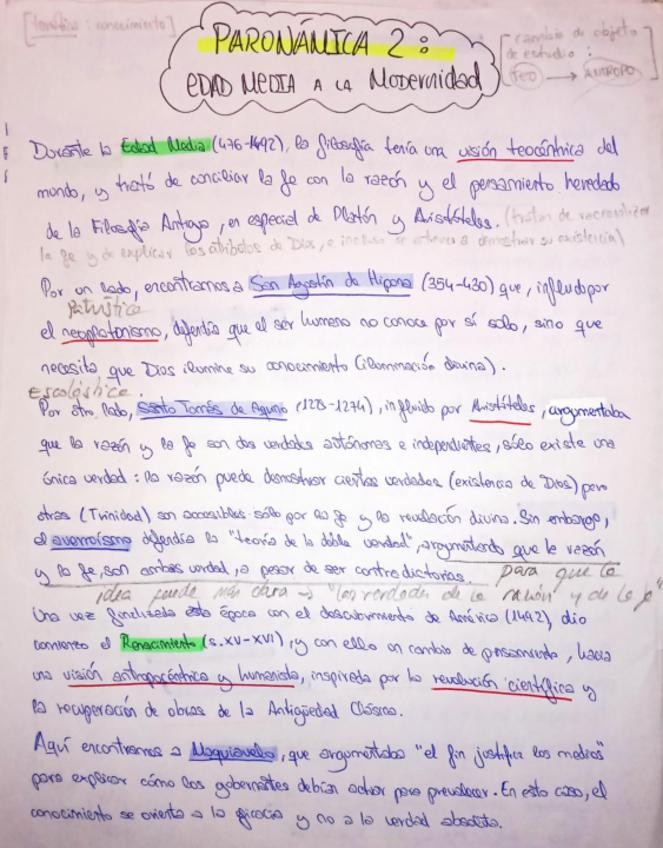 [temática: conocimiento]
PARONÁMICA 2:
EDAD MEDIA A LA Modernidad
[cambio de objeto
de estudio:
TEO → ANTROPO
Durante la Edad Media (476-1492), la filosofía tenía una visión teocéntrica del
mundo, y trató de conciliar la fe con la razón y el pensamiento heredado
de la Filosofía Antigua, en especial de Platón y Aristóteles. (tratan de racionalizar
la fe y de explicar los atributos de Dios, e incluso se atreven a demostrar su existencia)
Por un lado, encontramos a San Agustín de Hipona (354-430) que, influido por
Patrística
el neoplatonismo, defendía que el ser humano no conoce por sí solo, sino que
necesita que Dios ilumine su conocimiento (iluminación divina).
Escolástica.
Por otro lado, Santo Tomás de Aquino (1225-1274), influido por Aristóteles, argumentaba
que la razón y la fe son dos verdades autónomas e independientes, sólo existe una
única verdad: la razón puede demostrar ciertas verdades (existencia de Dios) pero
otras (Trinidad) son accesibles sólo por la fe y la revelación divina. Sin embargo,
el averroísmo defendía la "teoría de la doble verdad", argumentando que la razón
y la fe, son ambas verdad, a pesar de ser contradictorias. para que la
idea quede más clara → "las verdades de la razón y de la fe"
Una vez finalizada esta época con el descubrimiento de América (1492), dio
comienzo el Renacimiento (s. XV-XVI), y con ello un cambio de pensamiento, hacia
una visión antropocéntrica y humanista, inspirada por la revolución científica y
la recuperación de obras de la Antigüedad Clásica.
Aquí encontramos a Maquiavelo, que argumentaba "el fin justifica los medios"
para explicar cómo los gobernantes debían actuar para prevalecer. En este caso, el
conocimiento se orienta a la eficacia y no a la verdad absoluta.